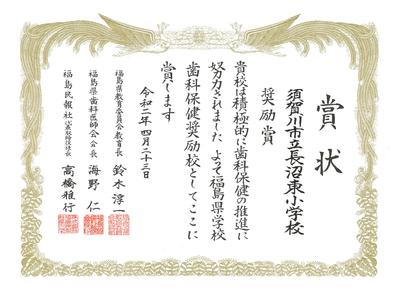 賞状
須賀川市立長沼東小学校
奨励賞
貴校は積極的に歯科保健の推進に
努力されました よって福島県学校
歯科保健奨励校としてここに
賞します
令和二年四月二十三日
福島県教育委員会教育長 鈴木淳一
福島県歯科医師会会長 海野仁
福島民報社代表取締役社長 高橋雅行